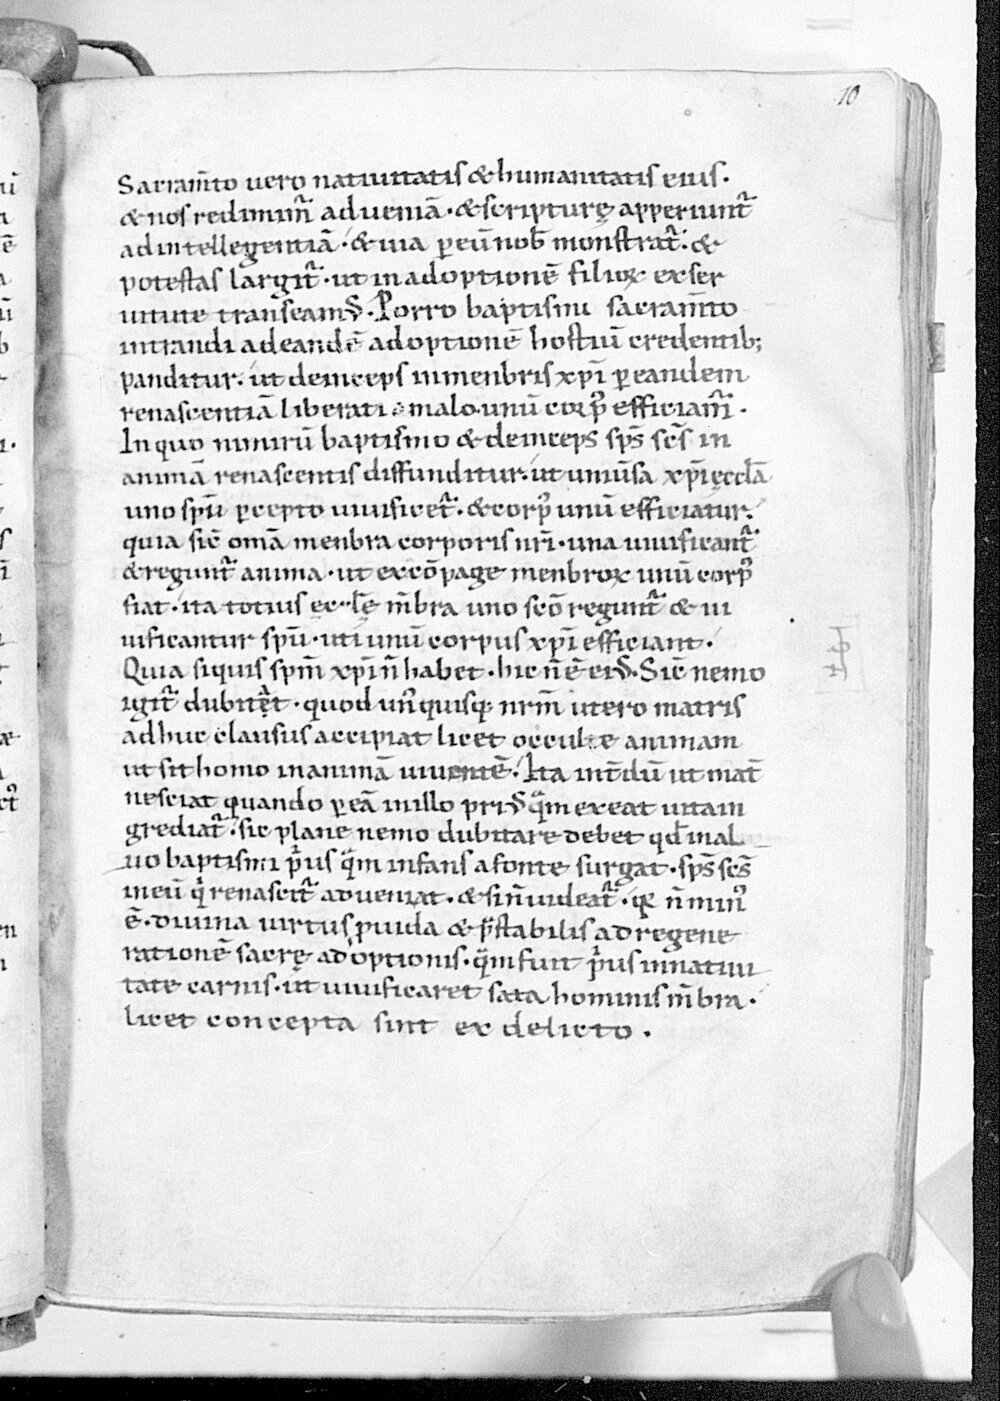 10
Sacram̄to vero nativitatis & humanitatis eius.
& nos redimim̄ ad veniā. & scripturę apperiunt᷑
ad intellegentiā. & via p̲ eū nob̄ monstrat᷑. &
potestas largit᷑. ut in adoptionē filioꝝ ex ser
vitute transeam᷒. Porro baptismi sacram̄to
intrandi ad eandē adoptionē hostiū credentib;
panditur. ut deinceps in menbris xp̄i p̲ eandem
renascentiā liberati a malo unū corp᷒ efficiam᷒.
In quo nimirū baptismo & deinceps sp̄s sc̄s in
animā renascentis diffunditur. ut univ̄sa xp̄i ęccl̄a
uno sp̄u p̲cepto vivificet᷑. & corp᷒ unū efficiatur.
quia sic̄ om̄a menbra corporis nr̄i. una vivificant᷑
& regunt᷑ anima. ut ex cōpage menbroꝝ unū corp᷒
fiat. ita totius ęc l̄ę m̄bra uno sc̄o regunt᷑ & vi
vificantur sp̄u. uti unū corpus xp̄i efficiant.
Quia siquis sp̄m xp̄i n̄ habet. hic n̄ ē ei᷒. Sic̄ nemo
igit᷑ dubitet. quod un᷒quisq; nr̄m utero matris
adhuc clausus accipiat licet occulte animam
ut sit homo in animā viventē. Ita int̄dū ut mat̄
nesciat quando p̲ eā in illo pri᷒ q̄m exeat vita in
grediat᷑. sic plane nemo dubitare debet qd̄ in al
vo baptismi p̄us q̄m infans a fonte surgat. sp̄s sc̄s
in eū q̄ renascit᷑ adveniat. & si n̄ videat᷑. q; n̄ min᷒
ē. divina virtus p̱vida & p̄stabilis ad regene
rationē sacrę adoptionis. q̄m fuit p̄us in nativi
tate carnis. ut vivificaret sata hominis m̄bra.
licet concepta sint ex delicto.